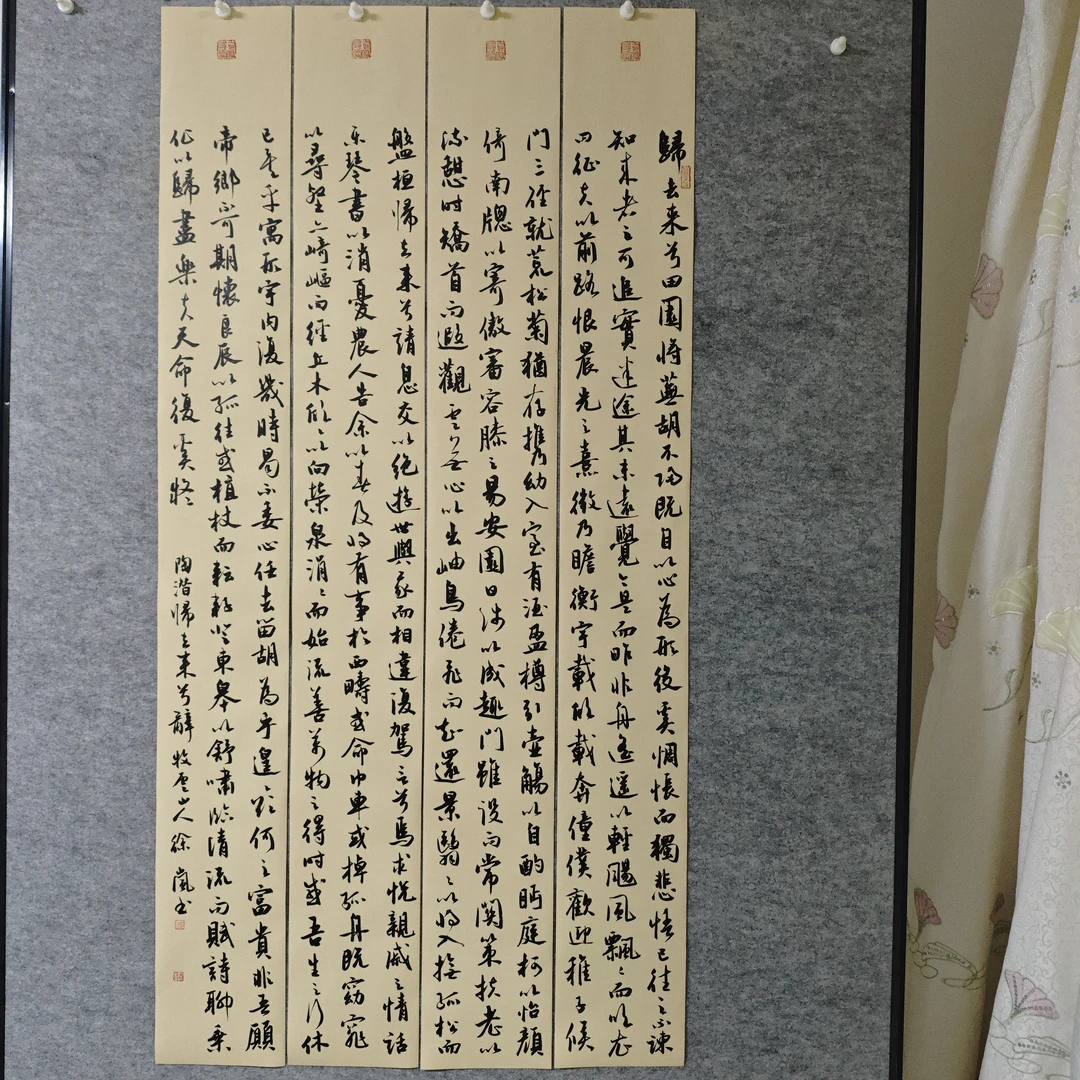 歸去来兮田園將蕪胡不歸既自以心為形役奚惆悵而獨悲悟已往之不諫
知来者之可追實迷途其未遠覺今是而昨非舟遙遙以輕颺風飄〻而吹衣
問征夫以前路恨晨光之熹微乃瞻衡宇載欣載奔僮僕歡迎稚子候
門三径就荒松菊猶存攜幼入室有酒盈樽引壺觴以自酌眄庭柯以怡顏
倚南牕以寄傲審容膝之易安園日涉以成趣門雖設而常関策扶老以
流憩時矯首而遐觀雲無心以出岫鳥倦飛而知還景翳〻以將入撫孤松而
盤桓帰去来兮請息交以絕遊世與我而相違復駕言兮焉求悦親戚之情話
樂琴書以消憂農人告余以春及將有事於西疇或命巾車或棹孤舟既窈窕
以尋壑亦崎嶇而經丘木欣〻以向榮泉涓〻而始流善萬物之得時感吾生之行休
已矣乎寓形宇内復幾時曷不委心任去留胡為乎遑〻欲何之富貴非吾願
帝鄉不可期懷良辰以孤往或植杖而耘耔登東皋以舒嘯臨清流而賦詩聊乘
化以歸盡樂夫天命復奚疑 陶潜帰去来兮辭 牧雲山人徐嵐書